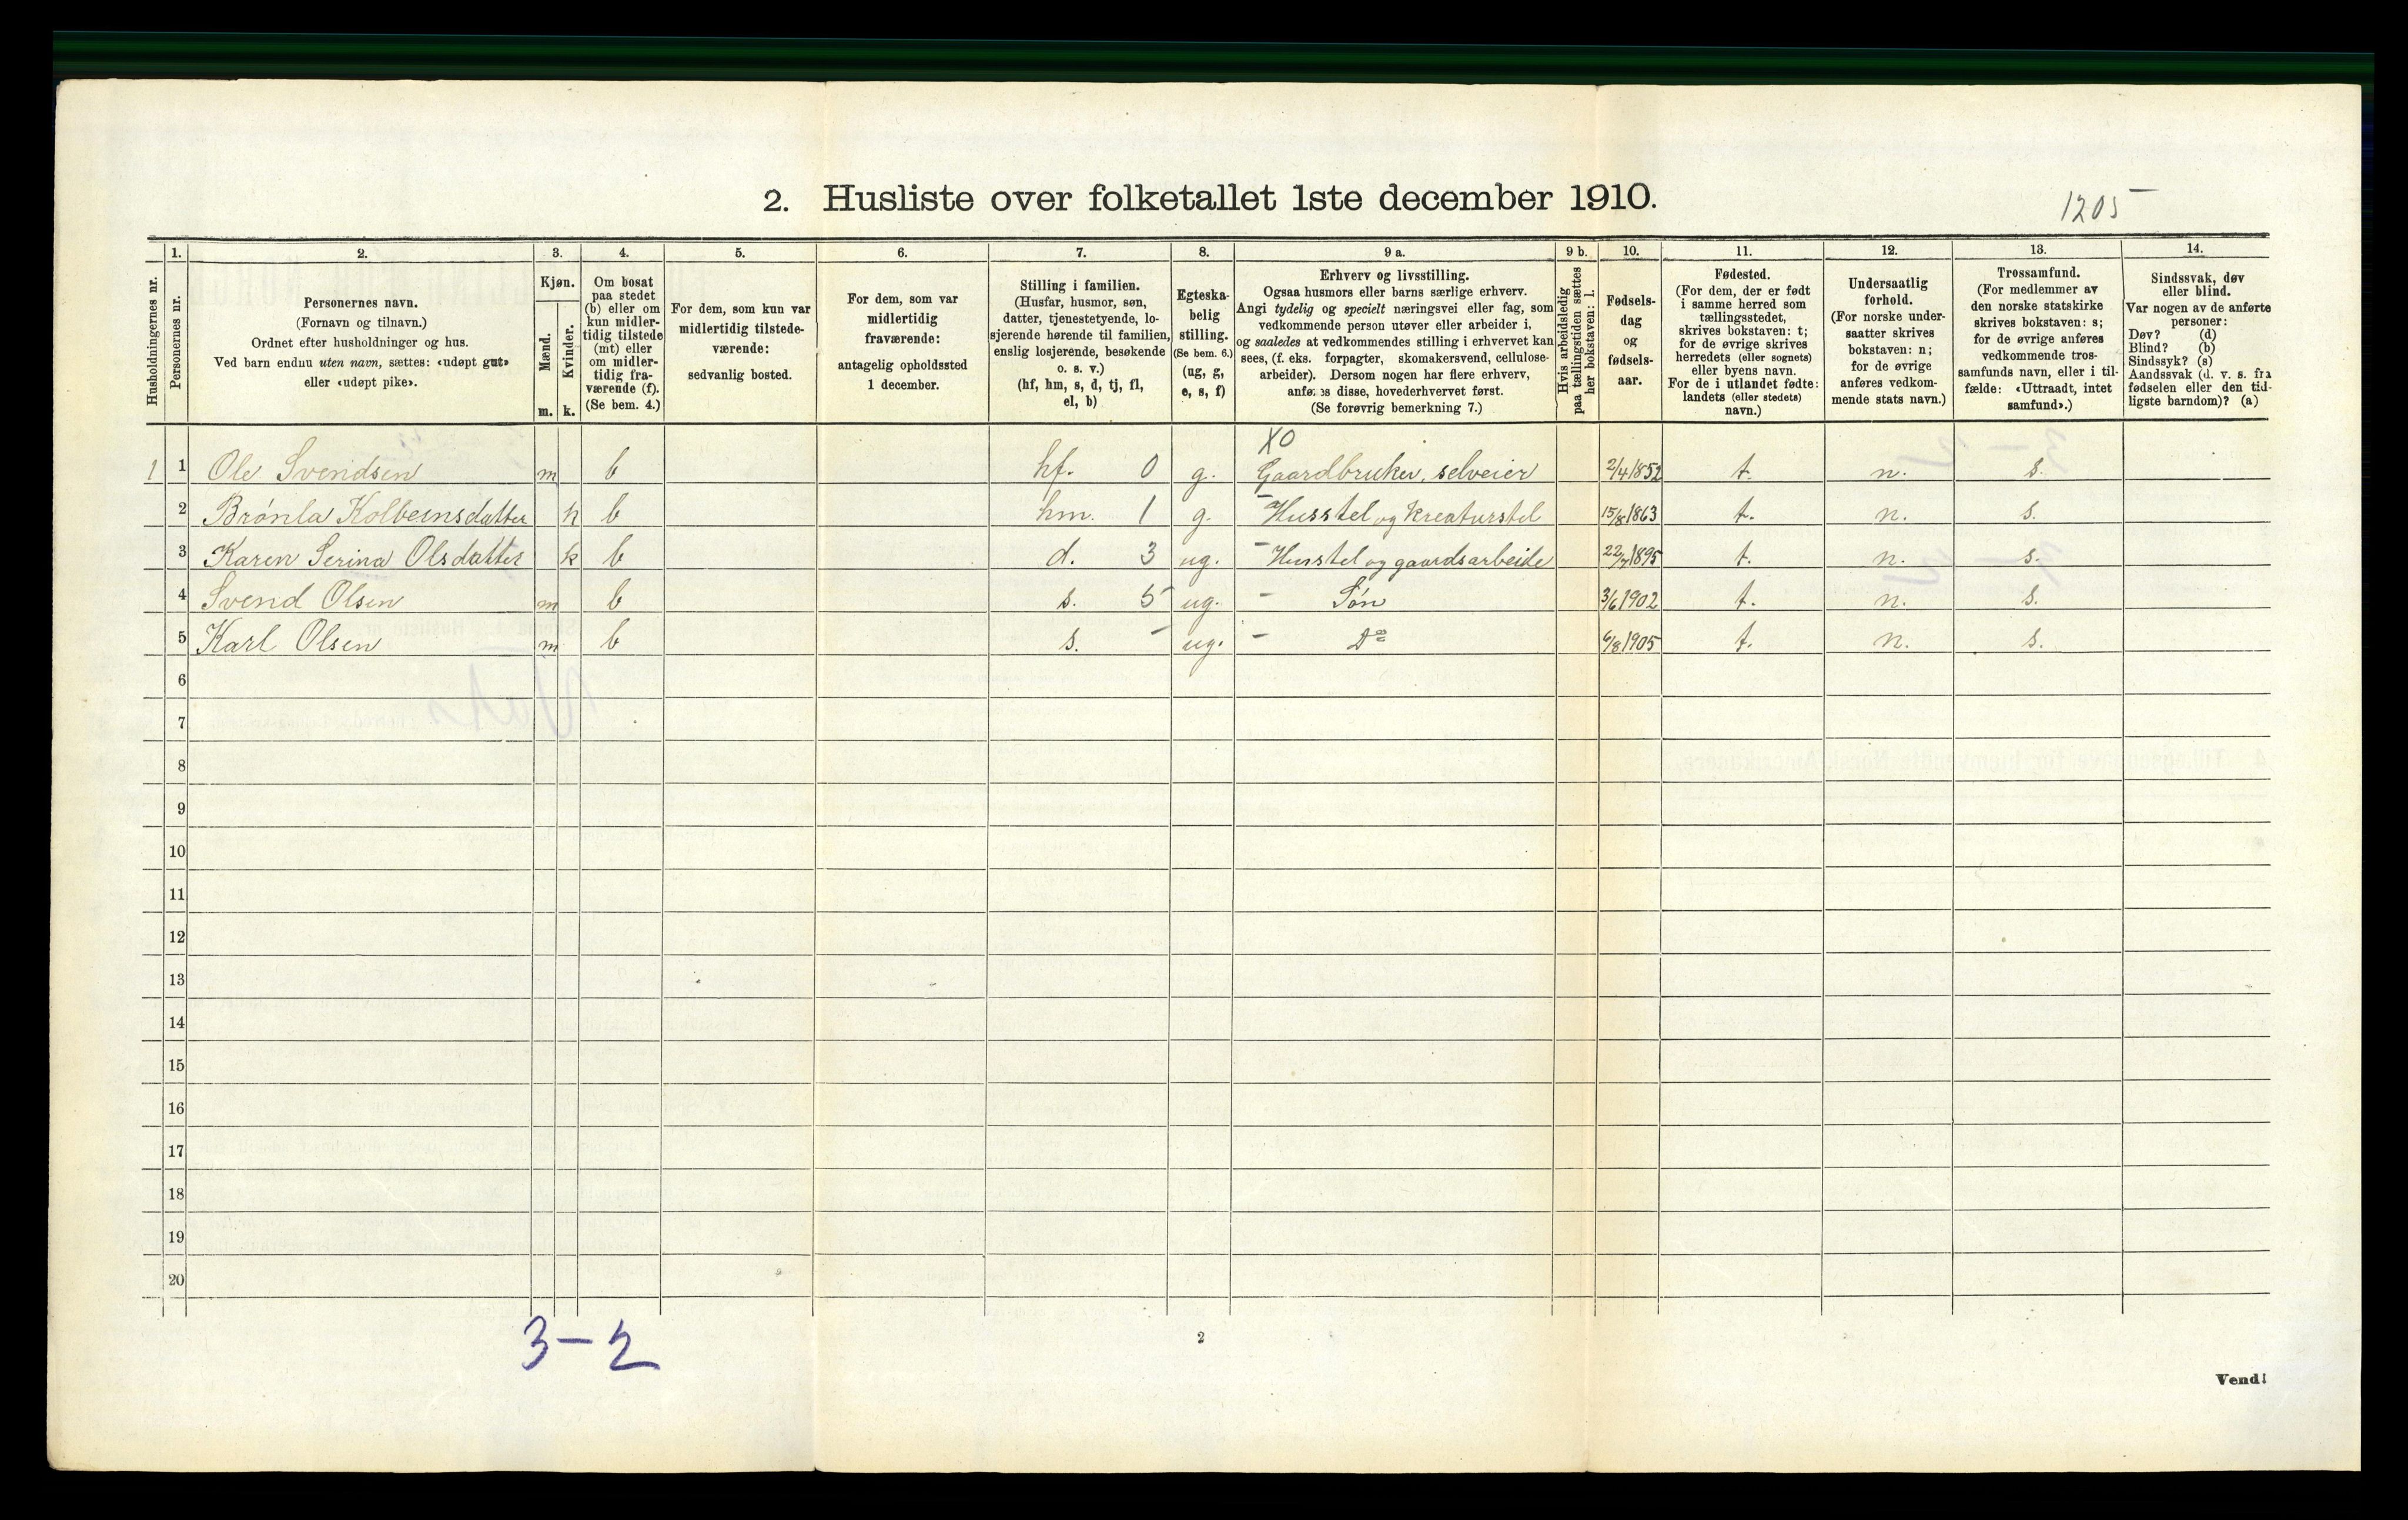 2. Husliste over folketallet 1ste december 1910.
1205
Husholdningernes nr.
1.
Personernes nr.
2.
Personernes navn.
(Fornavn og tilnavn.)
Ordnet efter husholdninger og hus.
Ved barn endnu uten navn, sættes: «udøpt gut»
eller «udøpt pike».
3.
Kjøn.
Mænd.
Kvinder.
m. k.
4.
Om bosat
paa stedet
(b) eller om
kun midler-
tidig tilstede
(mt) eller
om midler-
tidig fra-
værende (f).
(Se bem. 4.)
5.
For dem, som kun var
midlertidig tilstede-
værende:
sedvanlig bosted.
6.
For dem, som var
midlertidig
fraværende:
antagelig opholdssted
1 december.
7.
Stilling i familien.
(Husfar, husmor, søn,
datter, tjenestetyende, lo-
sjerende hørende til familien,
enslig losjerende, besøkende
o. s. v.)
(hf, hm, s, d, tj, fl,
el, b)
8.
Egteska-
belig
stilling.
(Se bem. 6.)
(ug, g,
e, s, f)
9 a.
Erhverv og livsstilling.
Ogsaa husmors eller barns særlige erhverv.
Angi tydelig og specielt næringsvei eller fag, som
vedkommende person utøver eller arbeider i,
og saaledes at vedkommendes stilling i erhvervet kan
sees, (f. eks. forpagter, skomakersvend, cellulose-
arbeider). Dersom nogen har flere erhverv,
anføres disse, hovederhvervet først.
(Se forøvrig bemerkning 7.)
9 b.
Hvis arbeidsledig
paa tællingstiden sættes
her bokstaven: l.
10.
Fødsels-
dag
og
fødsels-
aar.
11.
Fødested.
(For dem, der er født
i samme herred som
tællingsstedet,
skrives bokstaven: t;
for de øvrige skrives
herredets (eller sognets)
eller byens navn.
For de i utlandet fødte:
landets (eller stedets)
navn.)
12.
Undersaatlig
forhold.
(For norske under-
saatter skrives
bokstaven: n;
for de øvrige
anføres vedkom-
mende stats navn.)
13.
Trossamfund.
(For medlemmer av
den norske statskirke
skrives bokstaven: s;
for de øvrige anføres
vedkommende tros-
samfunds navn, eller i til-
fælde: «Uttraadt, intet
samfund».)
14.
Sindssvak, døv
eller blind.
Var nogen av de anførte
personer:
Døv? (d)
Blind? (b)
Sindssyk? (s)
Aandssvak (d. v. s. fra
fødselen eller den tid-
ligste barndom)? (a)
XO
1 1 Ole Svendsen m b hf. 0 g. Gaardbruker, selveier 2/4 1852 t. n. s.
2 Brønla Kolbeinsdatter k b hm. 1 g. - Husstel og kreaturstel 15/8 1863 t. n. s.
3 Karen Serina Olsdatter k b d. 3 ug. - Husstel og gaardsarbeide 22/7 1895 t. n. s.
4 Svend Olsen m b s. 5 ug. - Søn 3/6 1902 t. n. s.
5 Karl Olsen m b s. - ug. - Do 6/8 1905 t. n. s.
6
7
8
9
10
11
12
13
14
15
16
17
18
19
20
3-2
2
Vend!